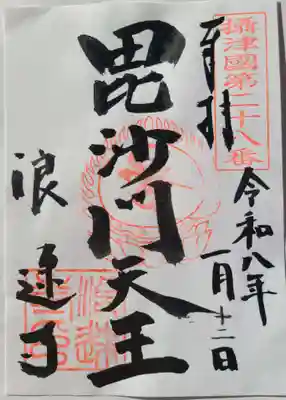 攝津國第二十八番
奉拝
令和八年
一月十二日
毘沙门天王
浪速寺